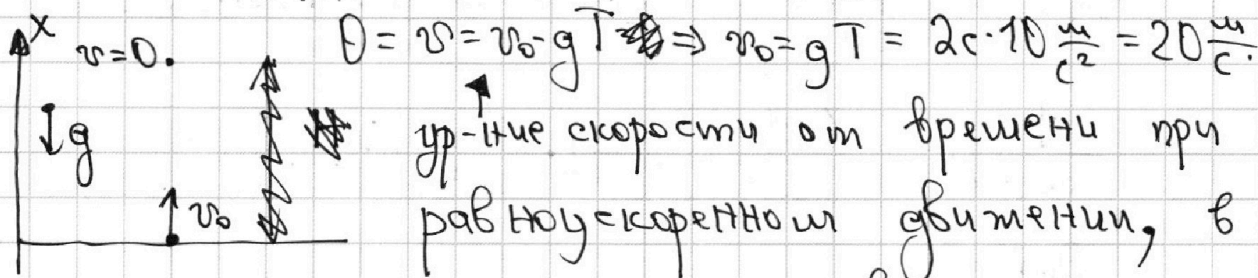 x v=0. 0 = v = v₀ - gT ⇒ v₀ = gT = 2с · 10 м/с² = 20 м/с.
↓g ур-ние скорости от времени при
↑v₀ равноускоренном движении, в